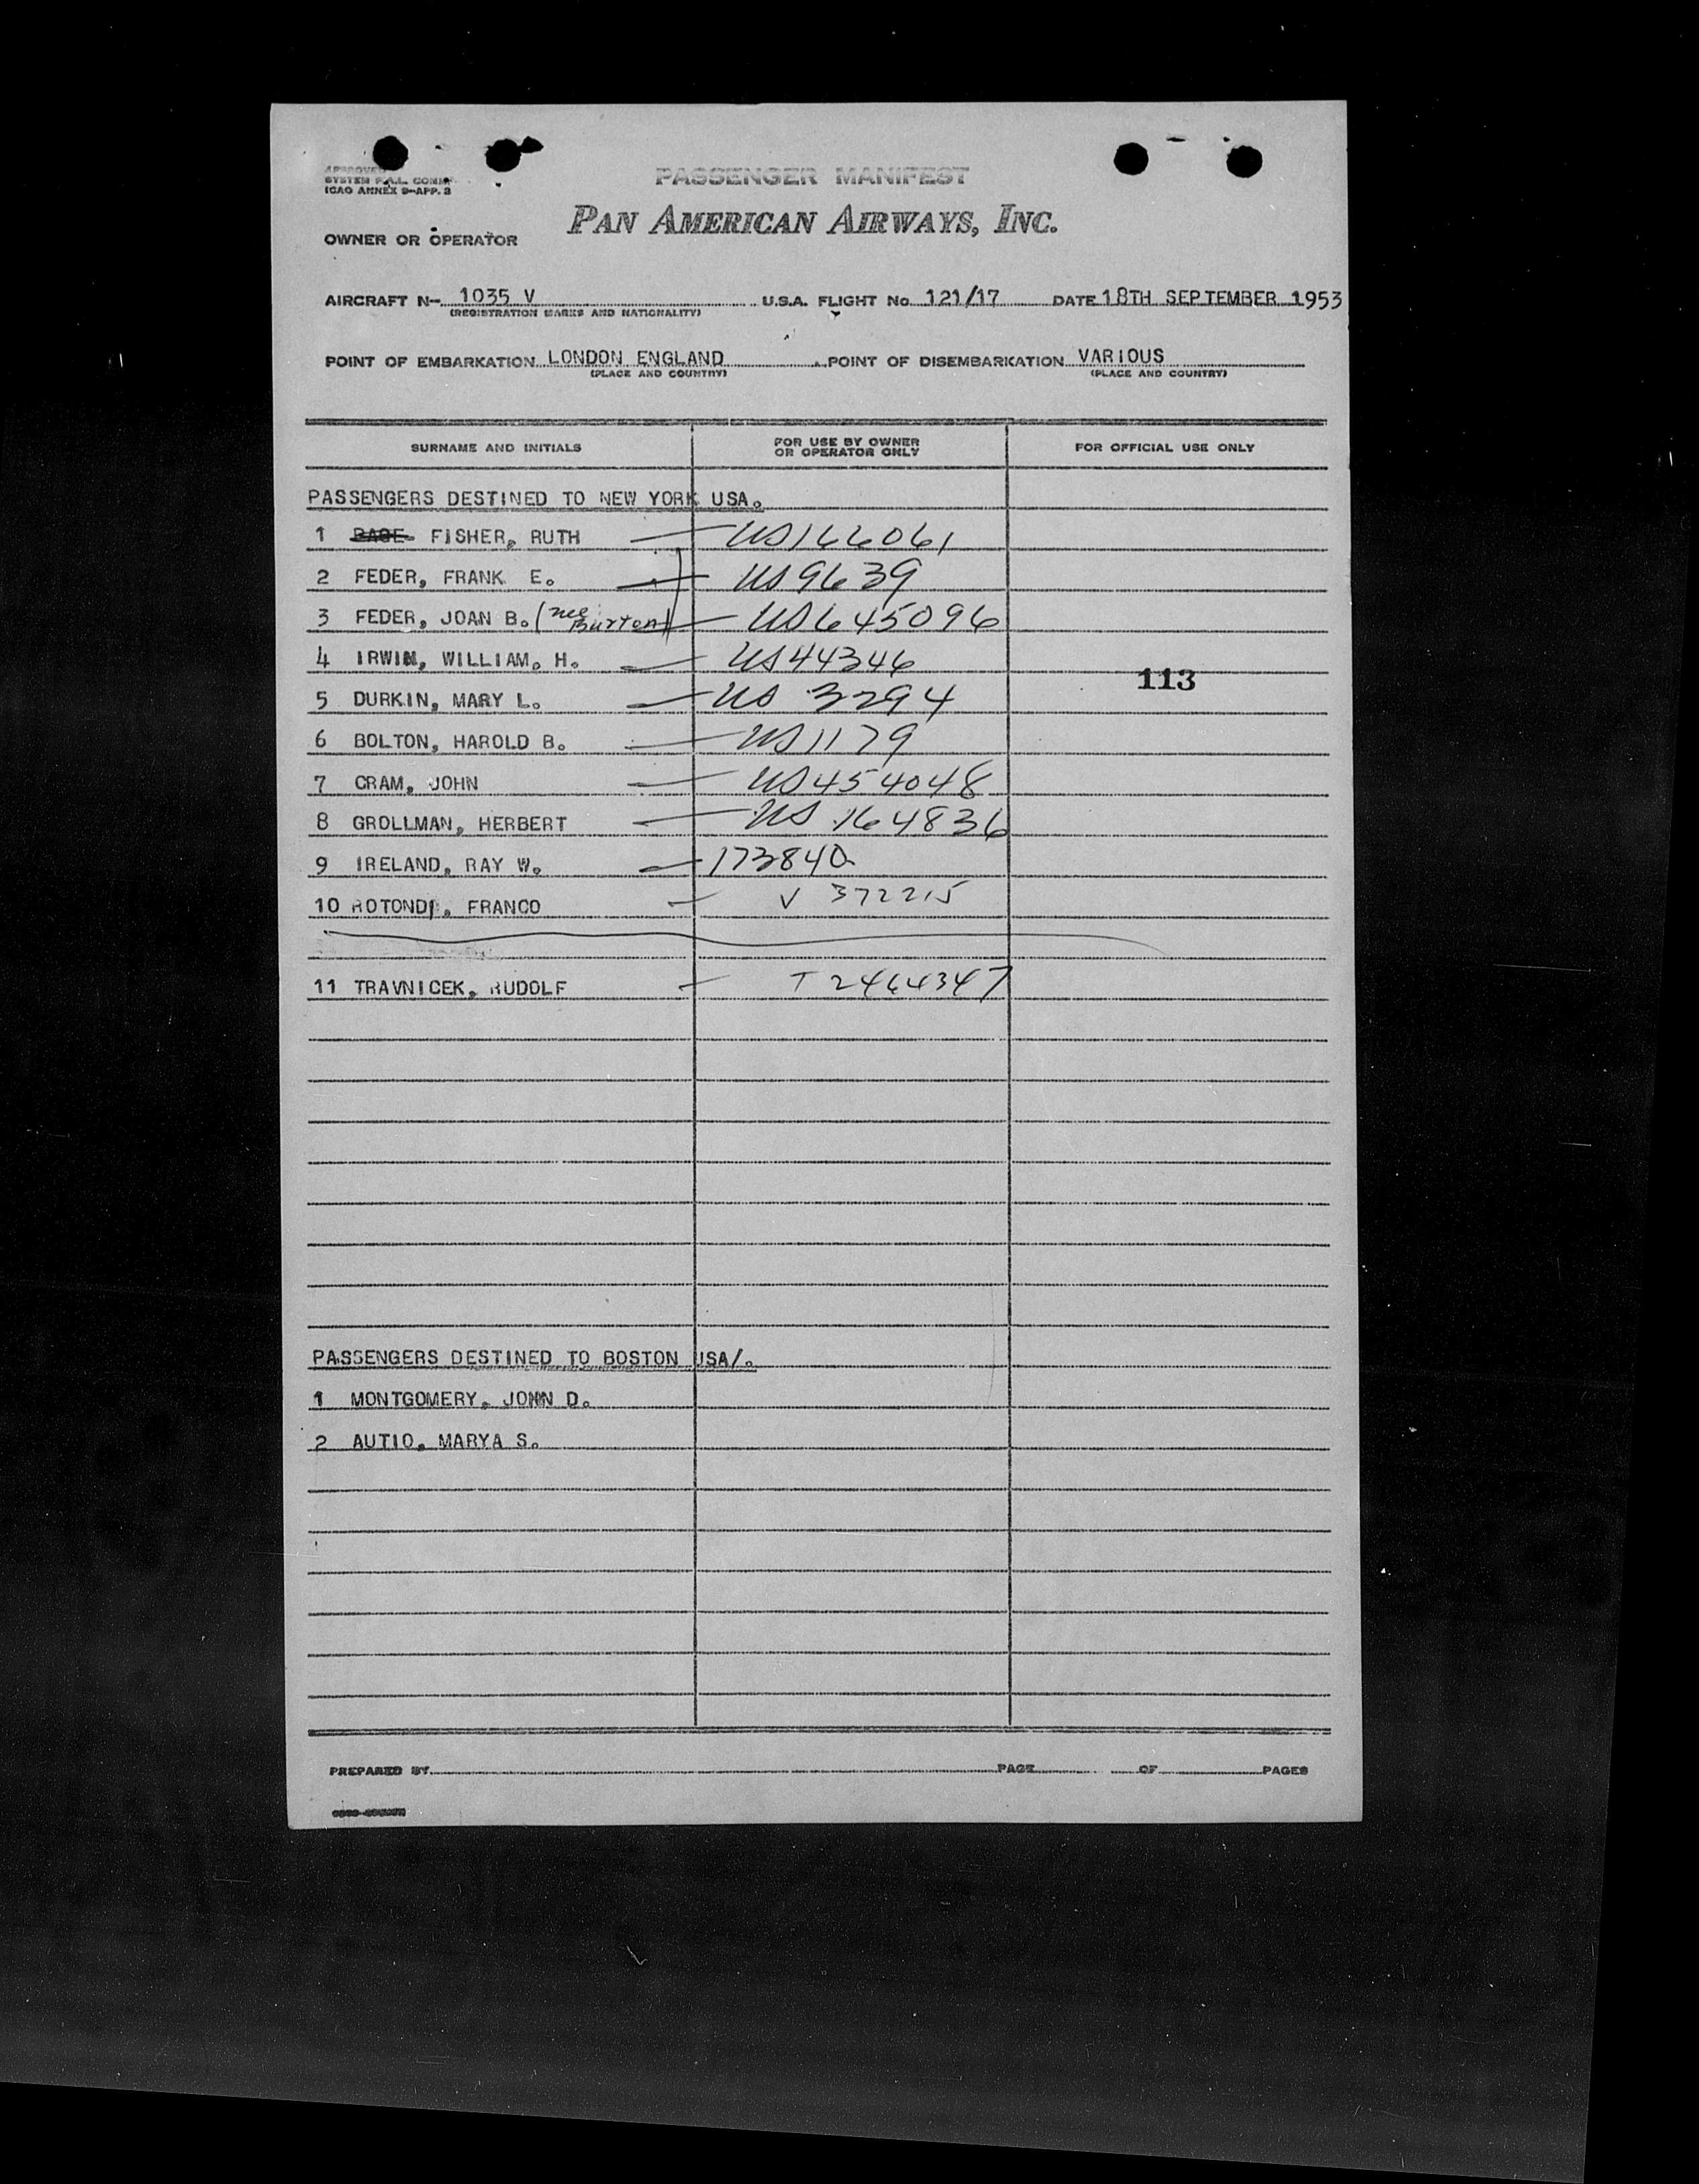 APPROVED
SYSTEM F.A.L. COMM.
ICAO ANNEX 9-APP. 3
PASSENGER MANIFEST
OWNER OR OPERATOR PAN AMERICAN AIRWAYS, INC.
AIRCRAFT N- 1035 V U.S.A. FLIGHT No. 121/17 DATE 18TH SEPTEMBER 1953
(REGISTRATION MARKS AND NATIONALITY)
POINT OF EMBARKATION LONDON ENGLAND POINT OF DISEMBARKATION VARIOUS
(PLACE AND COUNTRY) (PLACE AND COUNTRY)
SURNAME AND INITIALS FOR USE BY OWNER OR OPERATOR ONLY FOR OFFICIAL USE ONLY
PASSENGERS DESTINED TO NEW YORK USA.
1 FISHER, RUTH — US166061
2 FEDER, FRANK E. — US9639
3 FEDER, JOAN B. (nee Burton) — US645096
4 IRWIN, WILLIAM, H. — US44346
113
5 DURKIN, MARY L. — US 3294
6 BOLTON, HAROLD B. — US1179
7 CRAM, JOHN — US454048
8 GROLLMAN, HERBERT — US 164836
9 IRELAND, RAY W. — 173840
10 ROTONDI, FRANCO — V 372215
11 TRAVNICEK, RUDOLF — T 2464347
PASSENGERS DESTINED TO BOSTON USA/.
1 MONTGOMERY, JOHN D.
2 AUTIO, MARYA S.
PREPARED BY PAGE OF PAGES